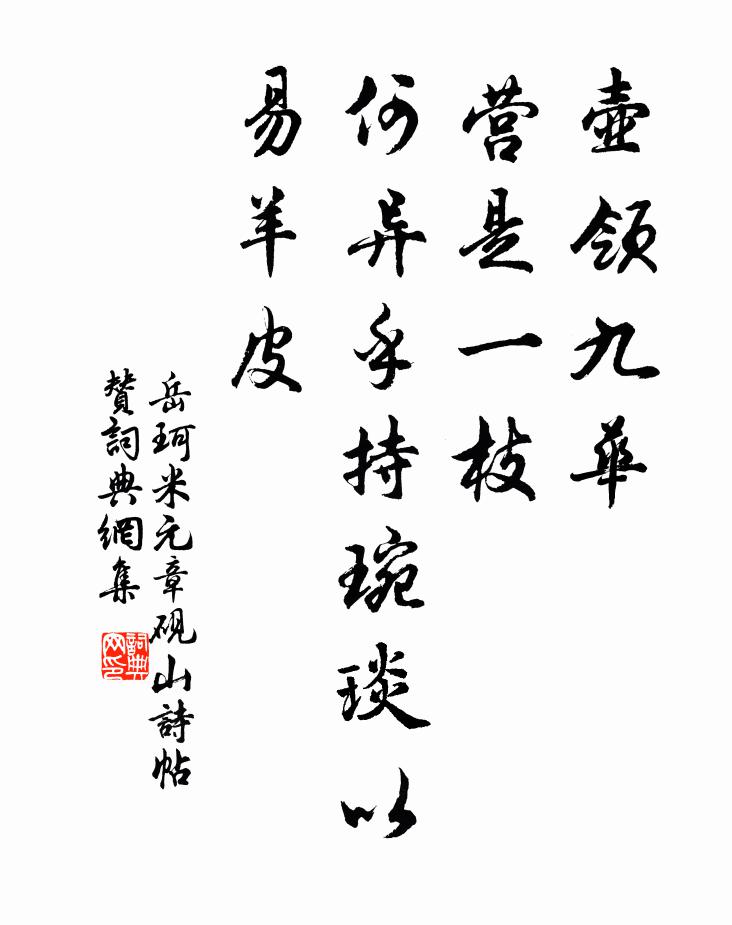 壺領九華
营是一枝
何异乎持琬琰以
易羊皮
岳珂米元章硯山詩帖
賛詞典網集
詞典
网印